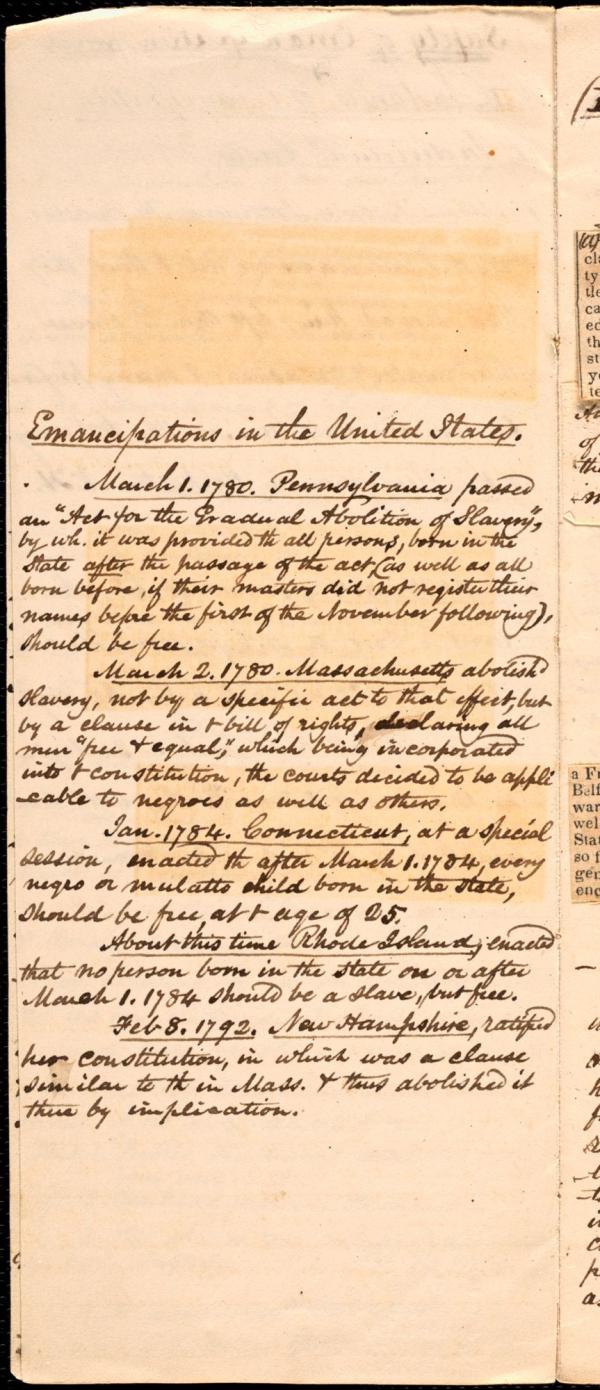 Emancipations in the United States.
March 1. 1780. Pennsylvania passed
an "Act for the Gradual Abolition of Slavery",
by wh. it was provided th all persons, born in the
State after the passage of the act (as well as all
born before, if their masters did not register their
names before the first of the November following),
should be free.
March 2. 1780. Massachusetts abolishd
slavery, not by a specific act to that effect, but
by a clause in t bill of rights, declaring all
men "free & equal", which being incorporated
into t constitution, the courts decided to be appli
-cable to negroes as well as others.
Jan. 1784. Connecticut, at a special
session, enacted th after March 1. 1784, every
negro or mulatto child born in the state,
should be free, at t age of 25.
About this time Rhode Island, enacted
that no person born in the state on or after
March 1. 1784 should be a slave, but free.
Feb 8. 1792. New Hampshire, ratified
her constitution, in which was a clause
similar to th in Mass. & thus abolished it
there by implication.
a Fr
Belf
war
wel
Stat
so f
gen
enc